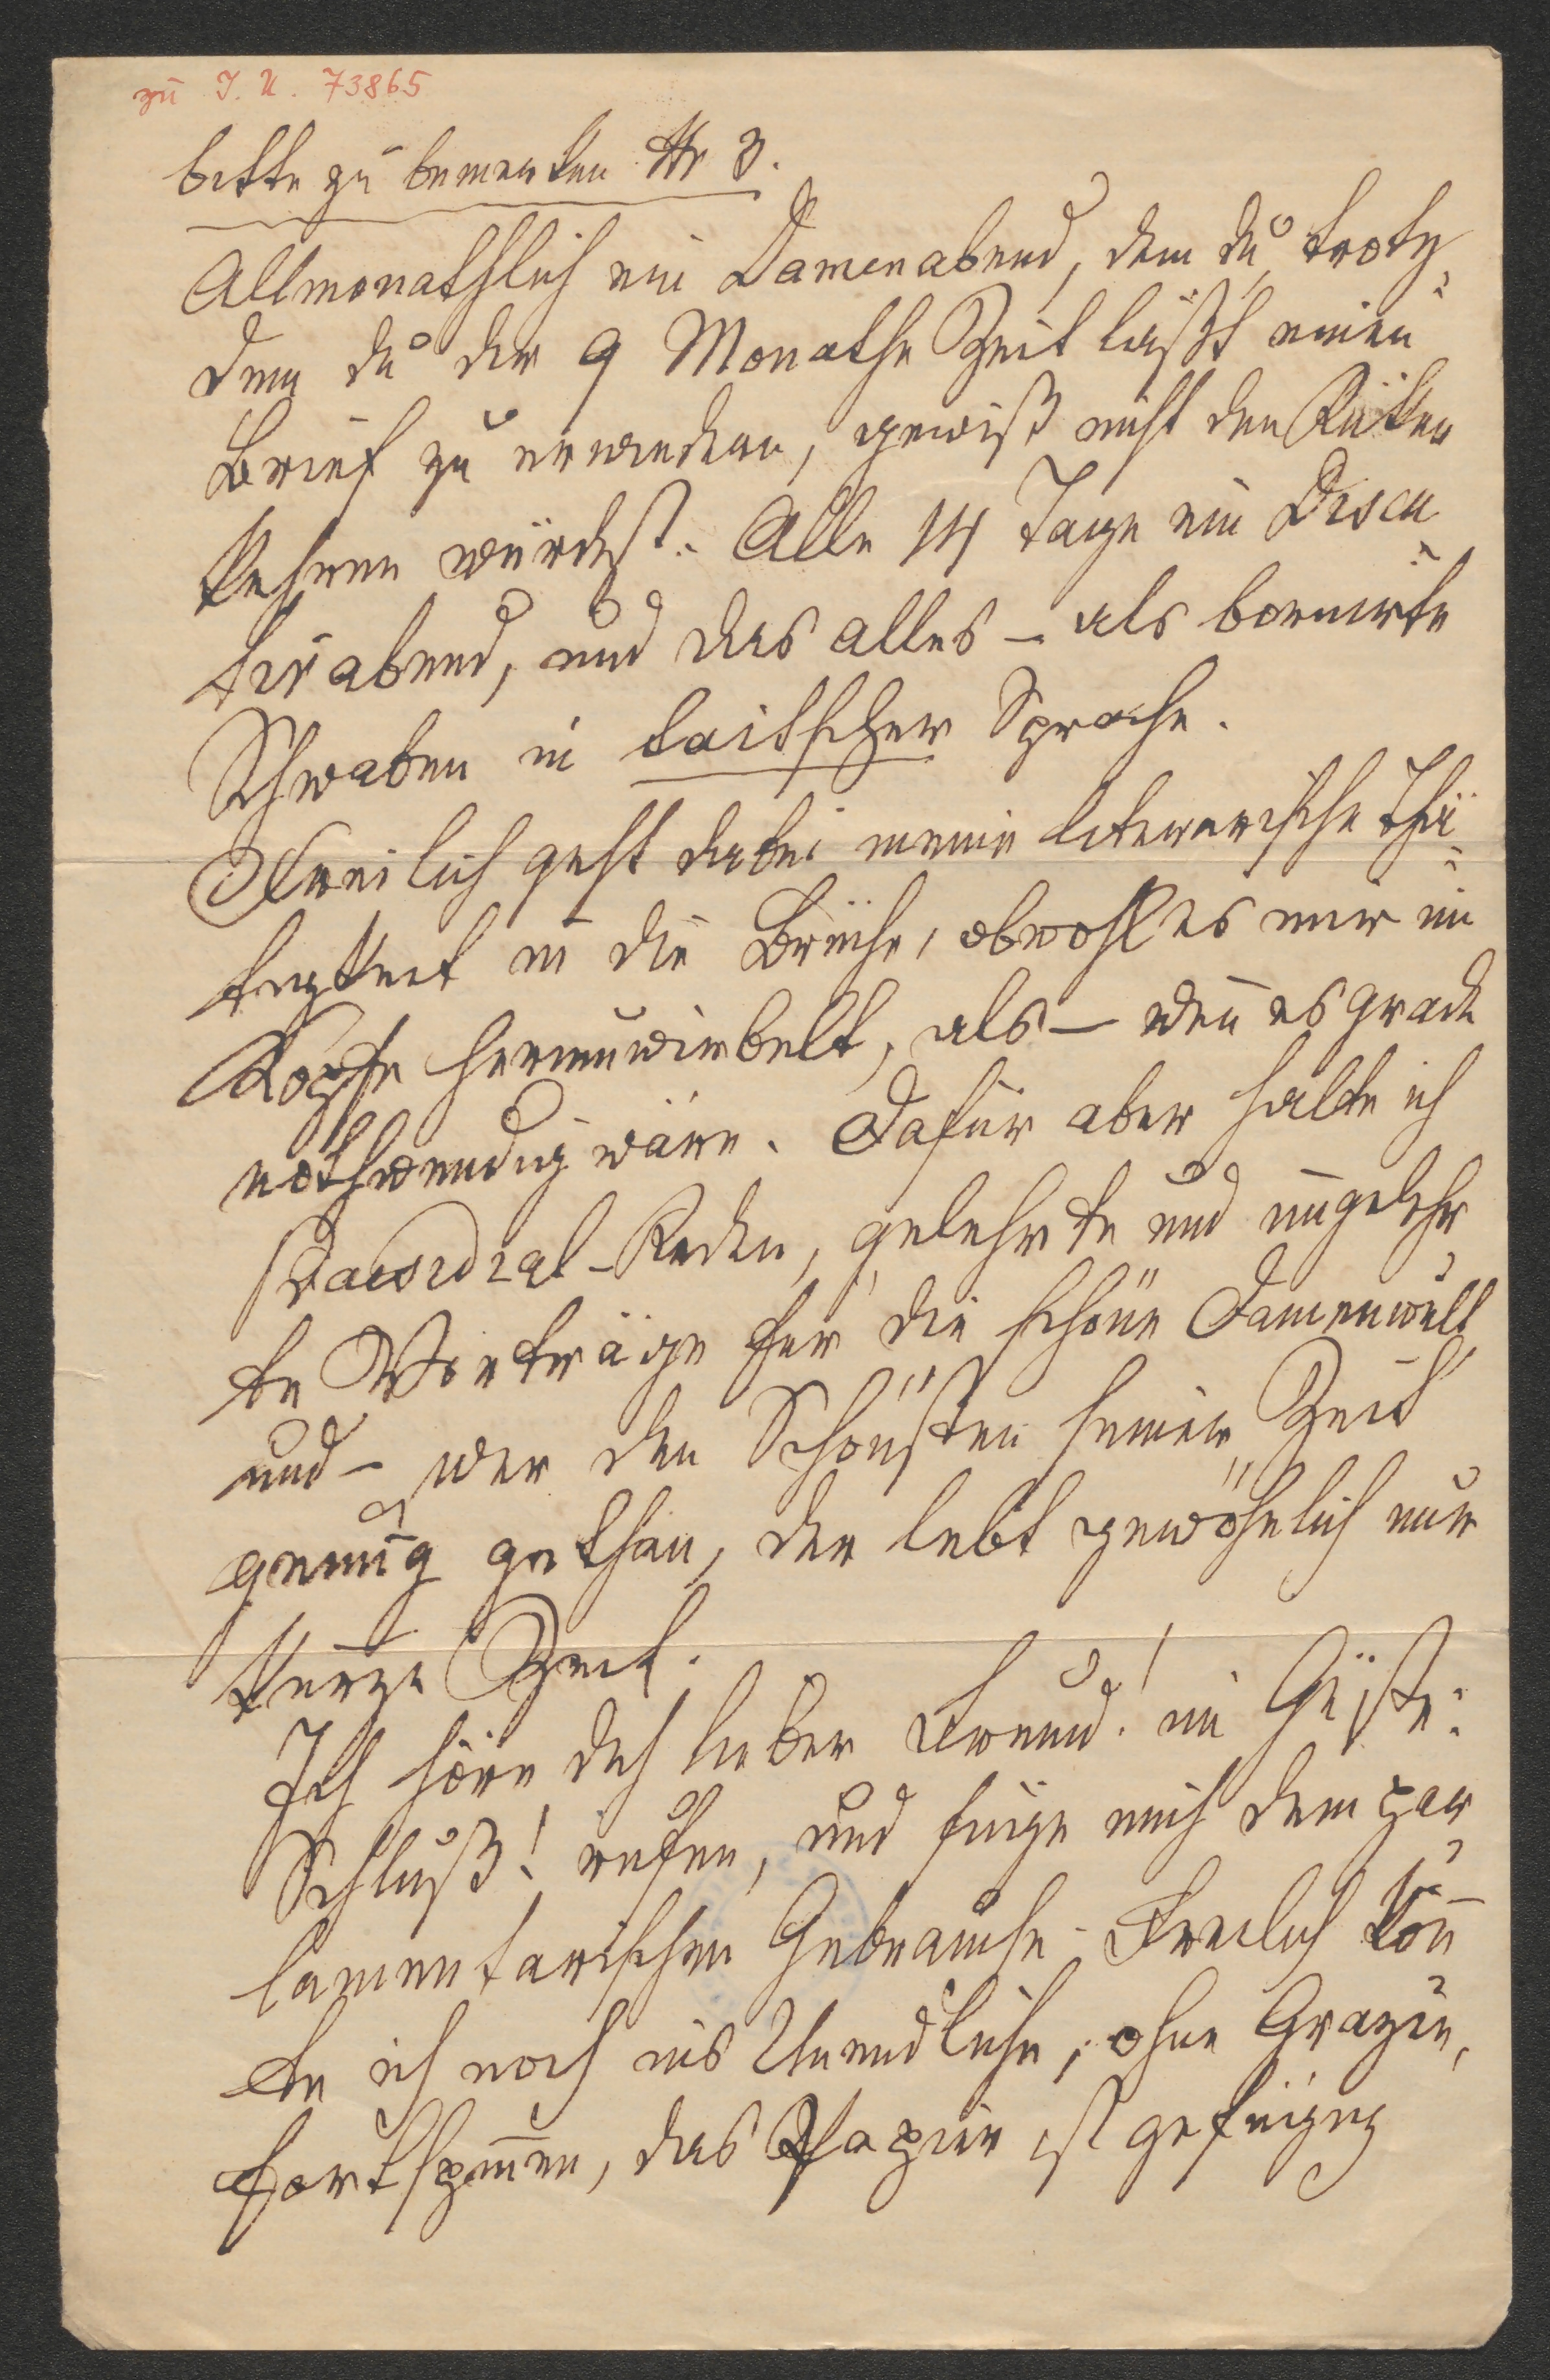 zu I. N. 73865
bitte zu bemerken Nr 3.
Allmonathlich ein Damenabend, dem du, trotz-
dem du dir 9 Monathe Zeit läßt einen
Brief zu erwiedern, gewiß nicht den Rücken
kehren würdest. Alle 14 Tage ein Discu-
tirabend, und das alles – als bornirte
Schwaben in taitscher Sprache.
Freilich geht dabei meine literarische Thä-
tigkeit in die Brüche, obwohl es mir im
Kopfe herumwirbelt, als – wen̄ es grade
nothwendig wäre. Dafür aber halte ich
Praesidial-Reden, gelehrte und ungelehr-
te Vorträge für die schöne Damenwelt,
und – wer den Schönsten seiner Zeit
genug gethan, der lebt gewöhnlich nur
kurze Zeit.
Ich höre dich lieber Freund! im Geiste:
Schluß! rufen, und füge mich dem par-
lamentarischen Gebrauche. Freilich kön̄-
te ich noch ins Unendliche, ohne Grazie,
fortspin̄en, das Papier ist gefügig